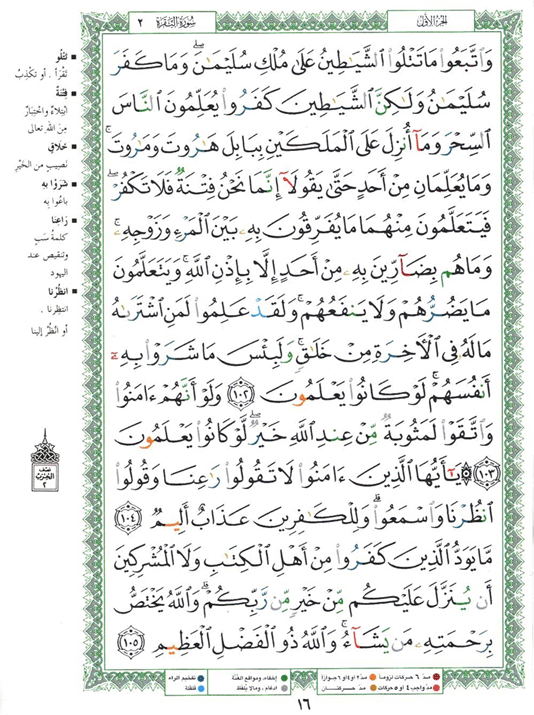 الجزء الأول
سورة البقرة ٢
وَاتَّبَعُوا مَا تَتْلُوا الشَّيَاطِينُ عَلَىٰ مُلْكِ سُلَيْمَٰنَ ۖ وَمَا كَفَرَ
سُلَيْمَٰنُ وَلَٰكِنَّ الشَّيَاطِينَ كَفَرُوا يُعَلِّمُونَ النَّاسَ
السِّحْرَ وَمَا أُنزِلَ عَلَى الْمَلَكَيْنِ بِبَابِلَ هَٰرُوتَ وَمَٰرُوتَ ۚ
وَمَا يُعَلِّمَانِ مِنْ أَحَدٍ حَتَّىٰ يَقُولَا إِنَّمَا نَحْنُ فِتْنَةٌ فَلَا تَكْفُرْ ۖ
فَيَتَعَلَّمُونَ مِنْهُمَا مَا يُفَرِّقُونَ بِهِۦ بَيْنَ الْمَرْءِ وَزَوْجِهِۦ ۚ
وَمَا هُم بِضَآرِّينَ بِهِۦ مِنْ أَحَدٍ إِلَّا بِإِذْنِ اللَّهِ ۚ وَيَتَعَلَّمُونَ
مَا يَضُرُّهُمْ وَلَا يَنفَعُهُمْ ۚ وَلَقَدْ عَلِمُوا لَمَنِ اشْتَرَىٰهُ
مَا لَهُ فِي الْآخِرَةِ مِنْ خَلَٰقٍ ۚ وَلَبِئْسَ مَا شَرَوْا بِهِۦٓ
أَنفُسَهُمْ ۚ لَوْ كَانُوا يَعْلَمُونَ ١٠٢ وَلَوْ أَنَّهُمْ ءَامَنُوا
وَاتَّقَوْا لَمَثُوبَةٌ مِّنْ عِندِ اللَّهِ خَيْرٌ ۖ لَّوْ كَانُوا يَعْلَمُونَ
١٠٣ ۞ يَٰٓأَيُّهَا الَّذِينَ ءَامَنُوا لَا تَقُولُوا رَٰعِنَا وَقُولُوا
انظُرْنَا وَاسْمَعُوا ۗ وَلِلْكَٰفِرِينَ عَذَابٌ أَلِيمٌ ١٠٤
مَّا يَوَدُّ الَّذِينَ كَفَرُوا مِنْ أَهْلِ الْكِتَٰبِ وَلَا الْمُشْرِكِينَ
أَن يُنَزَّلَ عَلَيْكُم مِّنْ خَيْرٍ مِّن رَّبِّكُمْ ۗ وَاللَّهُ يَخْتَصُّ
بِرَحْمَتِهِۦ مَن يَشَآءُ ۚ وَاللَّهُ ذُو الْفَضْلِ الْعَظِيمِ ١٠٥
■ تَتْلُو
تَقْرَأُ. أو تَكْذِبُ
■ فِتْنَةٌ
ابْتِلاءٌ واخْتِبَارٌ
مِنَ اللهِ تعالى
■ خَلَاقٍ
نَصِيبٍ من الخَيْرِ
■ شَرَوْا بِهِ
باعُوا بِهِ
■ رَاعِنَا
كلمةُ سَبٍّ
وتنقيص عند
اليهود
■ انظُرْنَا
انتظِرنا.
أو انظُرْ إلينا
نصف
الحزب
٢
مدّ ٦ حركات لزوماً
مدّ ٢ أو ٤ أو ٦ جوازاً
إخفاء، ومواقع الغُنَّة
تفخيم الراء
مدّ واجب ٤ أو ٥ حركات
مدّ حركتان
إدغام، وما لا يُلفَظ
قلقلة
١٦